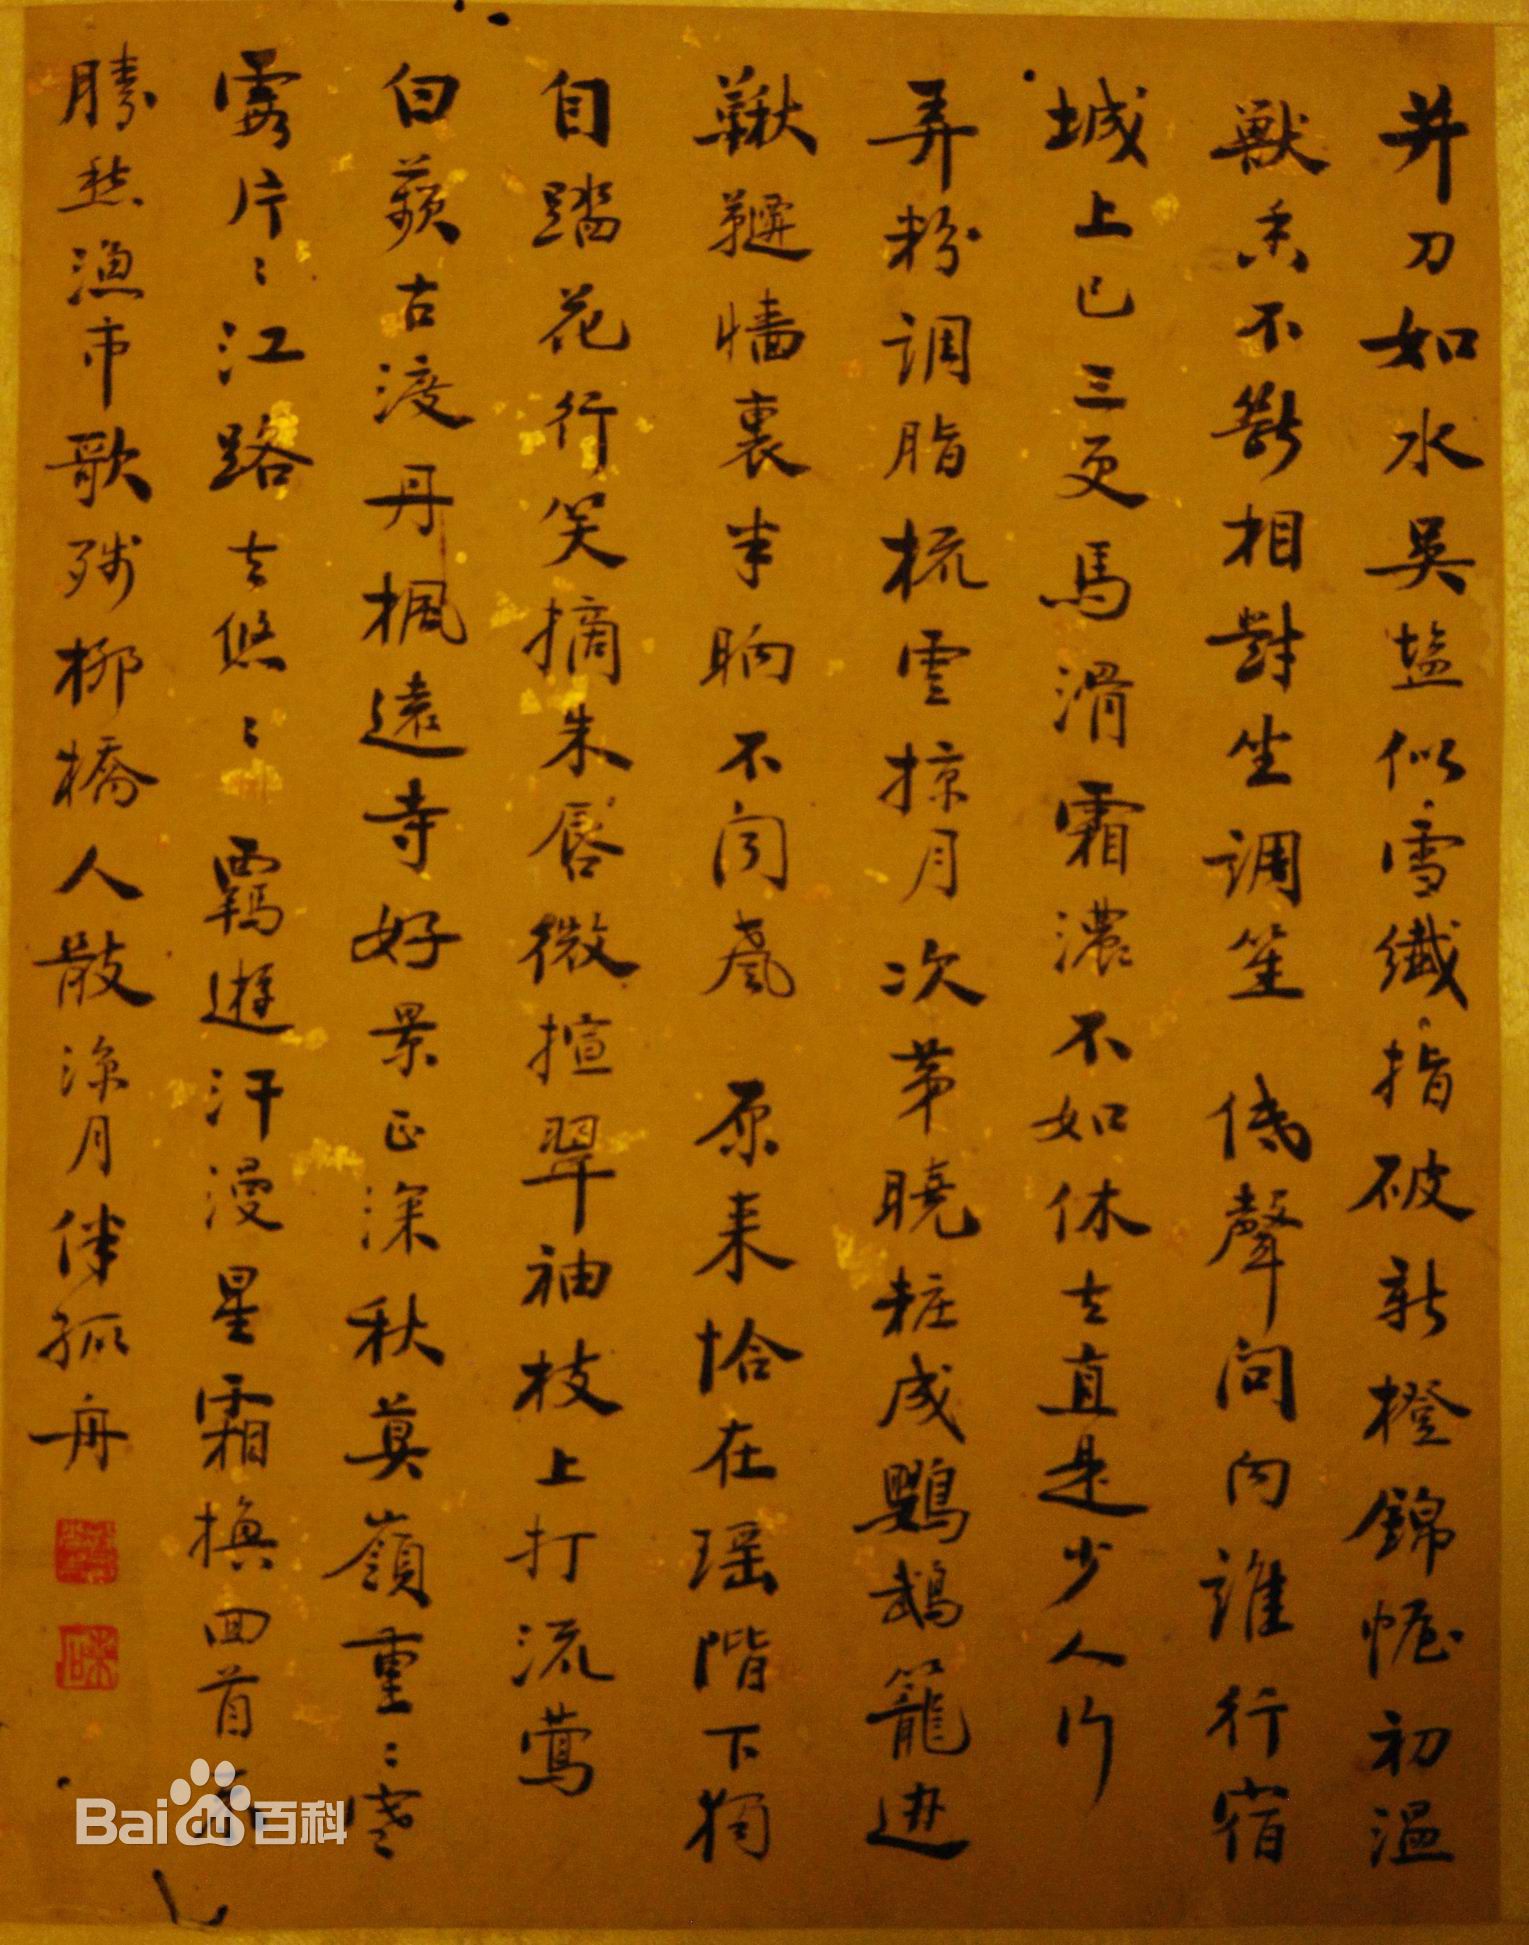 并刀如水吳塩似雪纖指破新橙錦幄初溫
獸香不斷相對坐調笙 低聲問向誰行宿
城上已三更馬滑霜濃不如休去直是少人行
弄粉調脂梳雲掠月次第曉粧成鸚鵡籠邊
鞦韆墻裏半晌不聞聲 原来恰在瑶階下獨
自踏花行笑摘朱唇微揎翠袖枝上打流鶯
白蘋古渡丹楓遠寺好景正深秋莫嶺重〻寒
片〻江路去悠〻羈遊汗漫星霜換回首不
勝愁漁市歌殘柳橋人散涼月伴孤舟
Bai百科